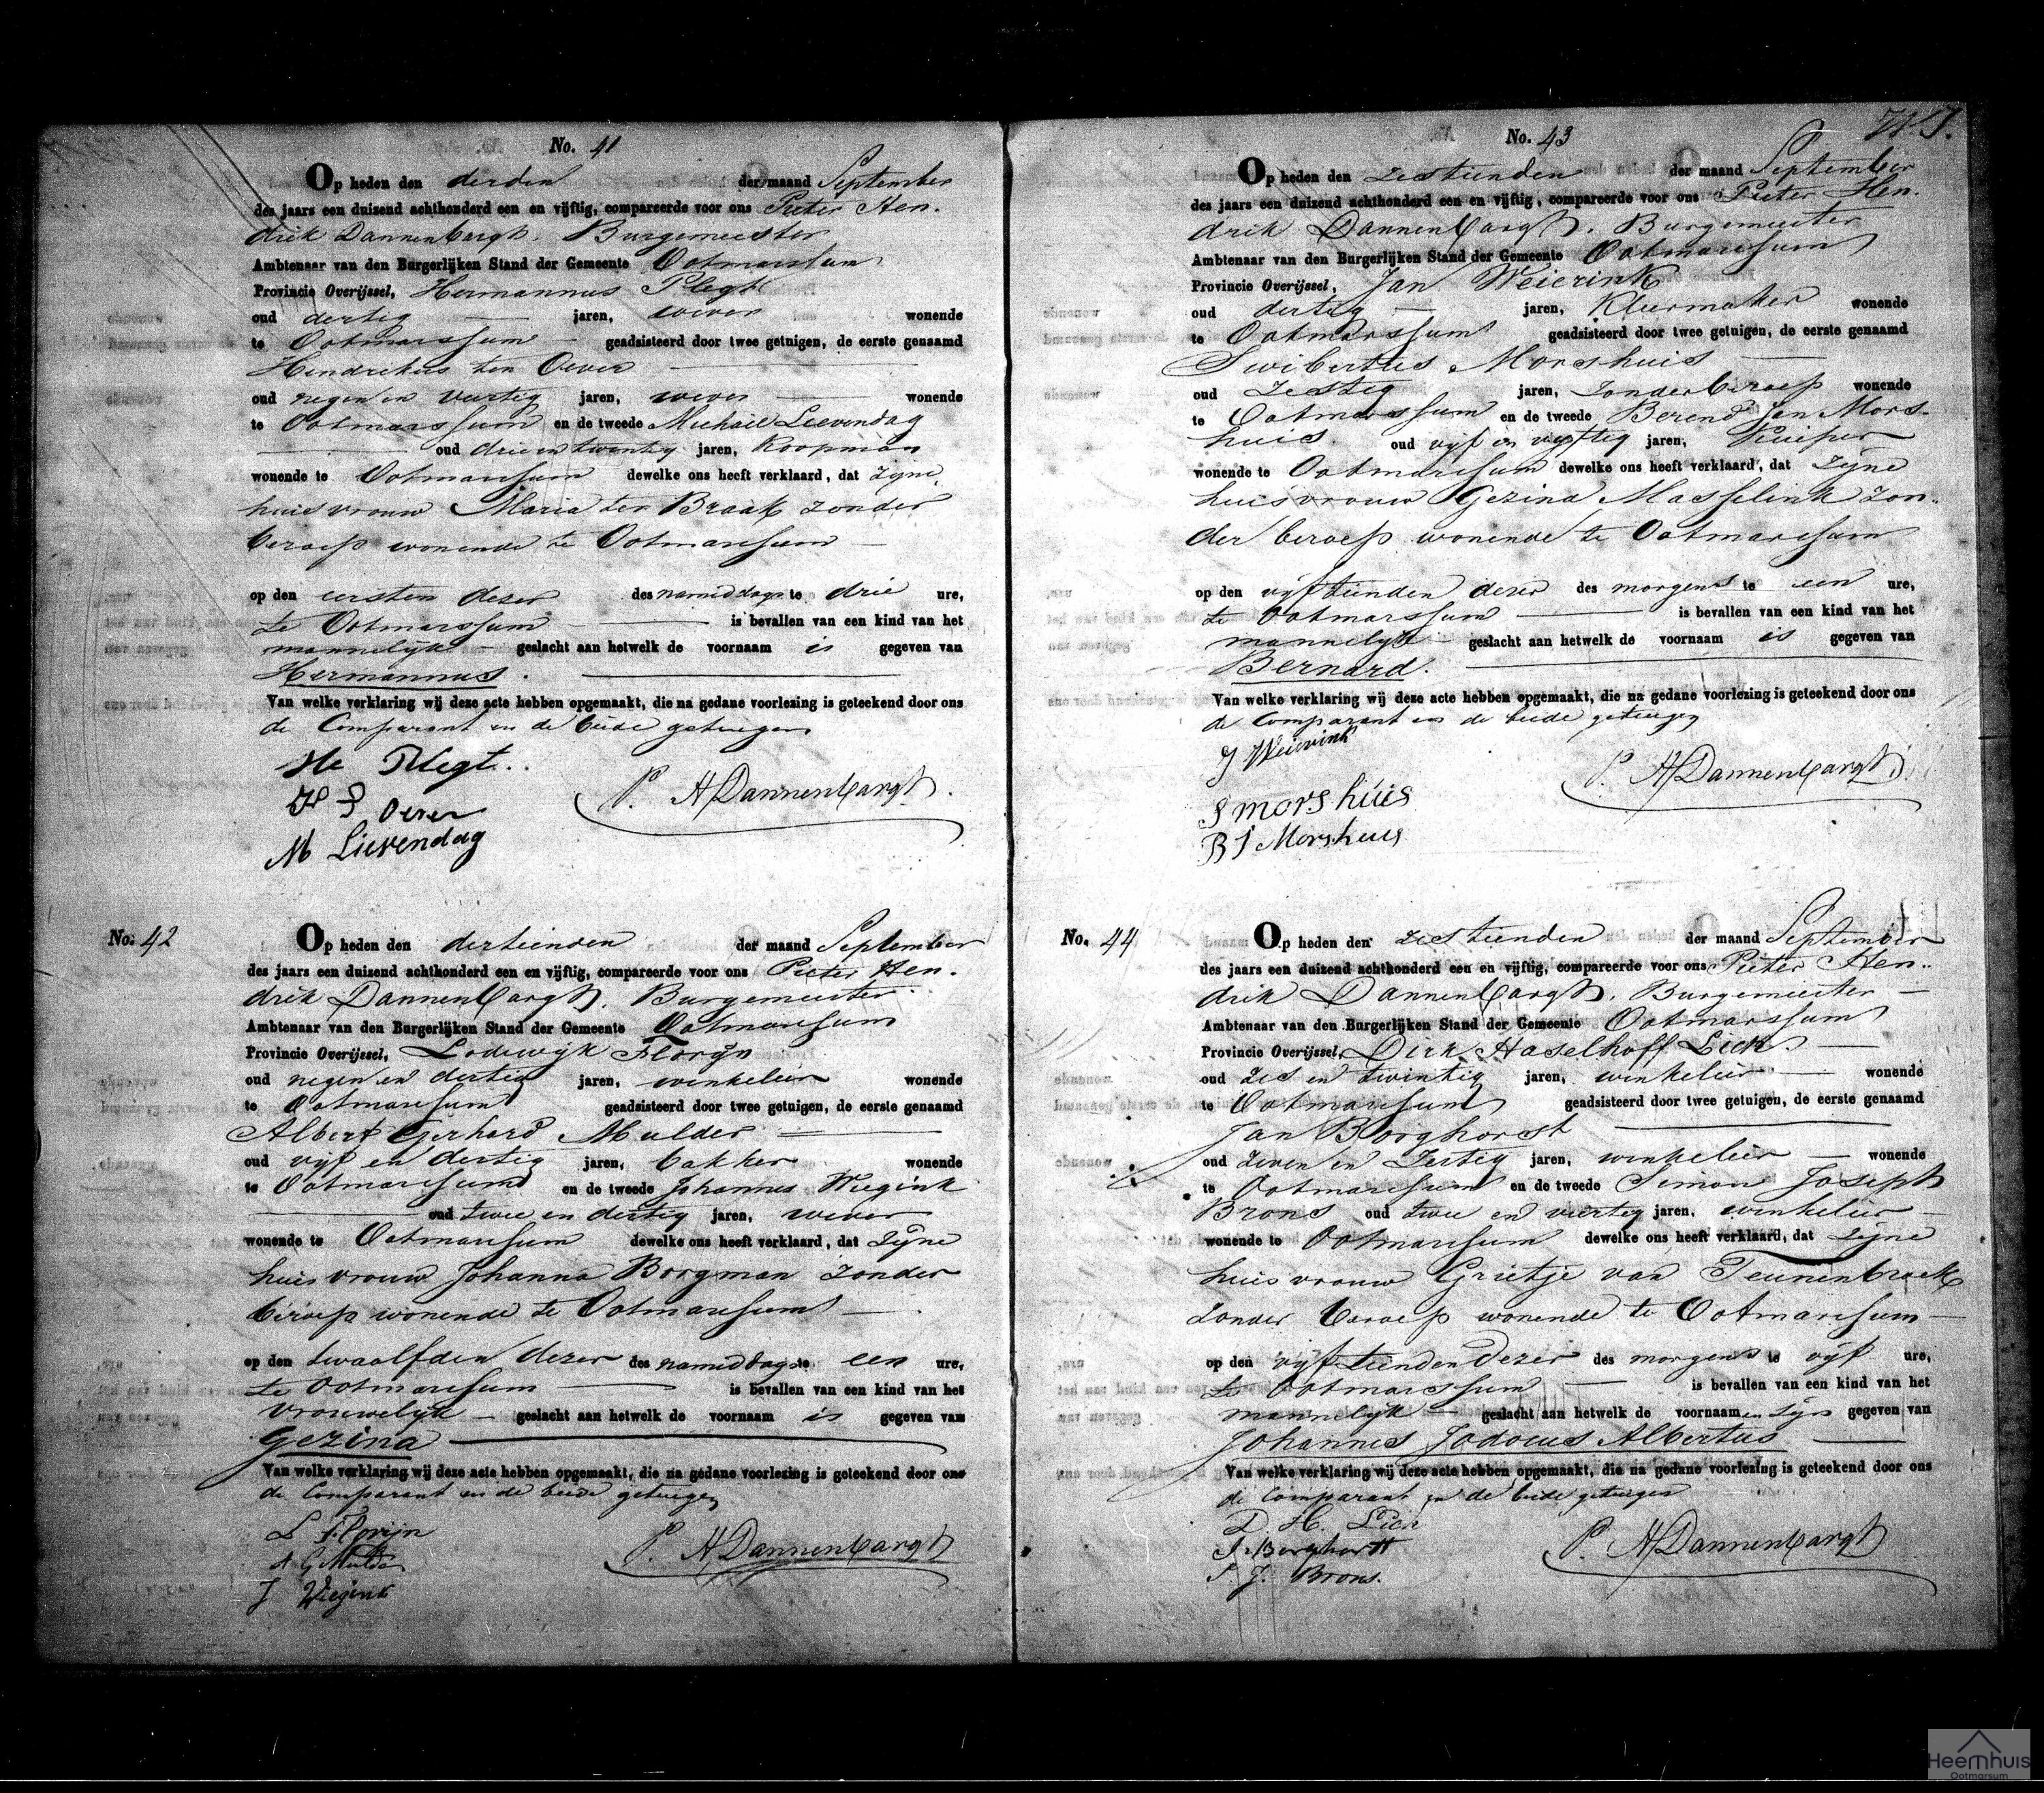 No. 41
Op heden den derden der maand September
des jaars een duizend achthonderd een en vijftig, compareerde voor ons Pieter Hen-
drik Dannenbargh. Burgemeester
Ambtenaar van den Burgerlijken Stand der Gemeente Ootmarssum
Provincie Overijssel, Hermannus Plegt
oud dertig jaren, wever wonende
te Ootmarssum geadsisteerd door twee getuigen, de eerste genaamd
Hendrikus ten Oever
oud negen en veertig jaren, wever wonende
te Ootmarssum en de tweede Michaël Leevendag
oud drie en twentig jaren, Koopman
wonende te Ootmarssum dewelke ons heeft verklaard, dat zijne
huisvrouw Maria ter Braak zonder
beroep wonende te Ootmarssum
op den eersten dezer des namiddags te drie ure,
te Ootmarssum is bevallen van een kind van het
mannelijk geslacht aan hetwelk de voornaam is gegeven van
Hermannus.
Van welke verklaring wij deze acte hebben opgemaakt, die na gedane voorlezing is geteekend door ons
de Comparant en de beide getuigen
He Plegt.
Oever
P. H Dannenbargh.
M Lievendag
No. 42
Op heden den dertienden der maand September
des jaars een duizend achthonderd een en vijftig, compareerde voor ons Pieter Hen-
drik Dannenbargh. Burgemeester
Ambtenaar van den Burgerlijken Stand der Gemeente Ootmarssum
Provincie Overijssel, Lodewijk Florijn
oud negen en dertig jaren, winkelier wonende
te Ootmarssum geadsisteerd door twee getuigen, de eerste genaamd
Albert Gerhard Mulder
oud vijf en dertig jaren, bakker wonende
te Ootmarssum en de tweede Johannes Wiegink
oud twee en dertig jaren, wever
wonende te Ootmarssum dewelke ons heeft verklaard, dat zijne
huisvrouw Johanna Borgman zonder
beroep wonende te Ootmarssum
op den twaalfden dezer des namiddags te een ure,
te Ootmarssum is bevallen van een kind van het
vrouwelijk geslacht aan hetwelk de voornaam is gegeven van
Gezina
Van welke verklaring wij deze acte hebben opgemaakt, die na gedane voorlezing is geteekend door ons
de Comparant en de beide getuigen
L Florijn
A G Mulder
P. H Dannenbargh
J Wiegink
No. 43
Op heden den zestienden der maand September
des jaars een duizend achthonderd een en vijftig, compareerde voor ons Pieter Hen-
drik Dannenbargh. Burgemeester
Ambtenaar van den Burgerlijken Stand der Gemeente Ootmarssum
Provincie Overijssel, Jan Weierink
oud dertig jaren, Kleermaker wonende
te Ootmarssum geadsisteerd door twee getuigen, de eerste genaamd
Swibertus Morshuis
oud zestig jaren, zonder beroep wonende
te Ootmarssum en de tweede Berend Jan Mors-
huis. oud vijf en vijftig jaren, Kuiper
wonende te Ootmarssum dewelke ons heeft verklaard, dat zijne
huisvrouw Gezina Masselink zon-
der beroep wonende te Ootmarssum
op den vijftienden dezer des morgens te een ure,
te Ootmarssum is bevallen van een kind van het
mannelijk geslacht aan hetwelk de voornaam is gegeven van
Bernard.
Van welke verklaring wij deze acte hebben opgemaakt, die na gedane voorlezing is geteekend door ons
de Comparant en de beide getuigen
J Weierink
P. H Dannenbargh
S morshuis
B J Morshuis
No. 44
Op heden den zestienden der maand September
des jaars een duizend achthonderd een en vijftig, compareerde voor ons Pieter Hen-
drik Dannenbargh. Burgemeester
Ambtenaar van den Burgerlijken Stand der Gemeente Ootmarssum
Provincie Overijssel, Dirk Haselhoff Lich.
oud zes en twintig jaren, winkelier wonende
te Ootmarssum geadsisteerd door twee getuigen, de eerste genaamd
Jan Borghorst
oud zeven en zestig jaren, winkelier wonende
te Ootmarssum en de tweede Simon Joseph
Brons oud twee en viertig jaren, winkelier
wonende te Ootmarssum dewelke ons heeft verklaard, dat zijne
huisvrouw Grietje van Teunenbroek
zonder beroep wonende te Ootmarssum
op den vijftienden dezer des morgens te vijf ure,
te Ootmarssum is bevallen van een kind van het
mannelijk geslacht aan hetwelk de voornaamen zijn gegeven van
Johannes Jodocus Albertus
Van welke verklaring wij deze acte hebben opgemaakt, die na gedane voorlezing is geteekend door ons
de Comparant en de beide getuigen
D. H. Lich
J. Borghorst
P. H Dannenbargh
S. J. Brons.
Heemhuis
Ootmarsum